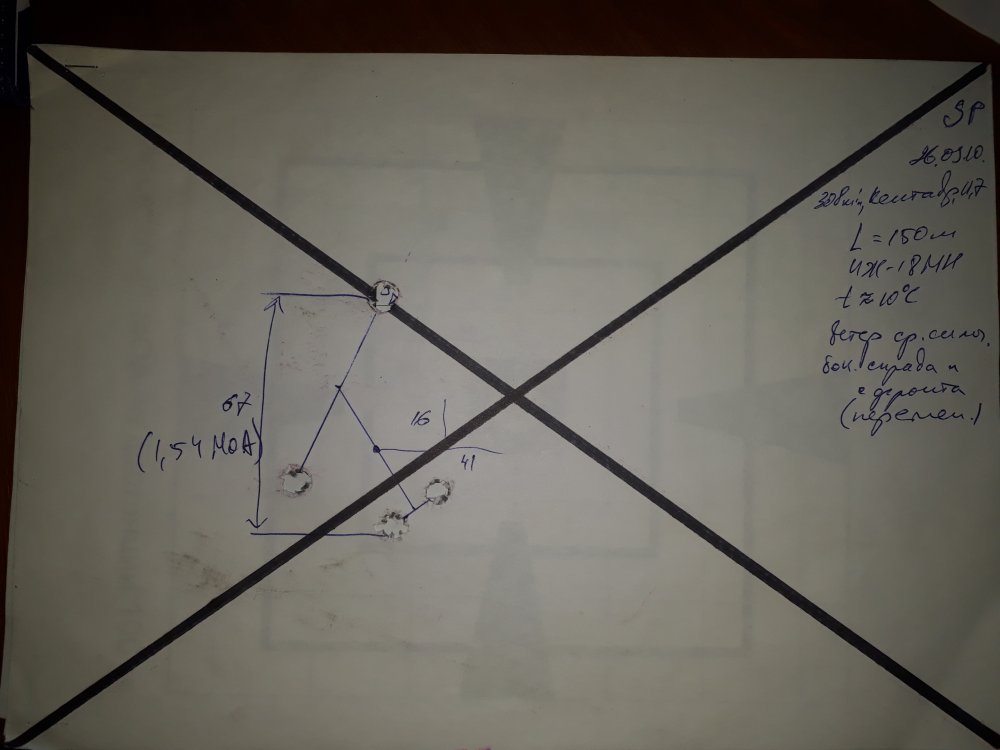 SP
26.0910.
308win, Кентавр, 11,7
L = 150м
ИЖ-18МН
t ≈ 10°C
Ветер ср. силы,
бок. справа и
с фронта
(перемен.)
67
(1,54 МОА)
16
41